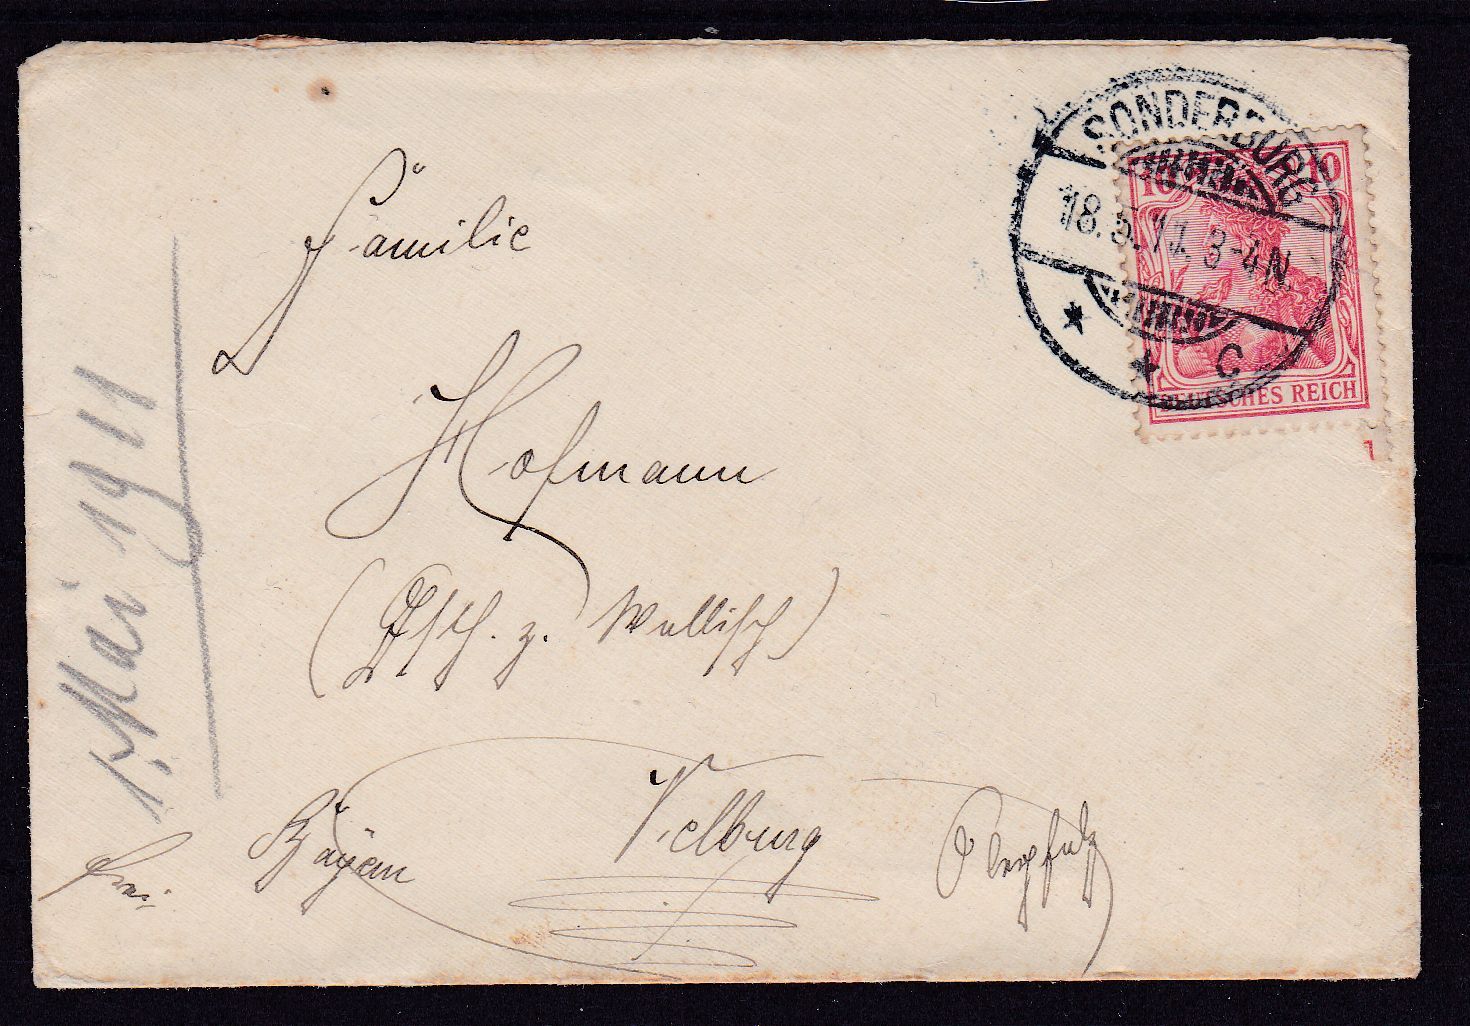 SONDERBURG
18.5.11. 3-4N.
* * C
10 10
DEUTSCHES REICH
1
Familie
Hofmann
( z. Wellisch)
Velburg
Bayern
Oberpfalz
frei
1. Mai 1911